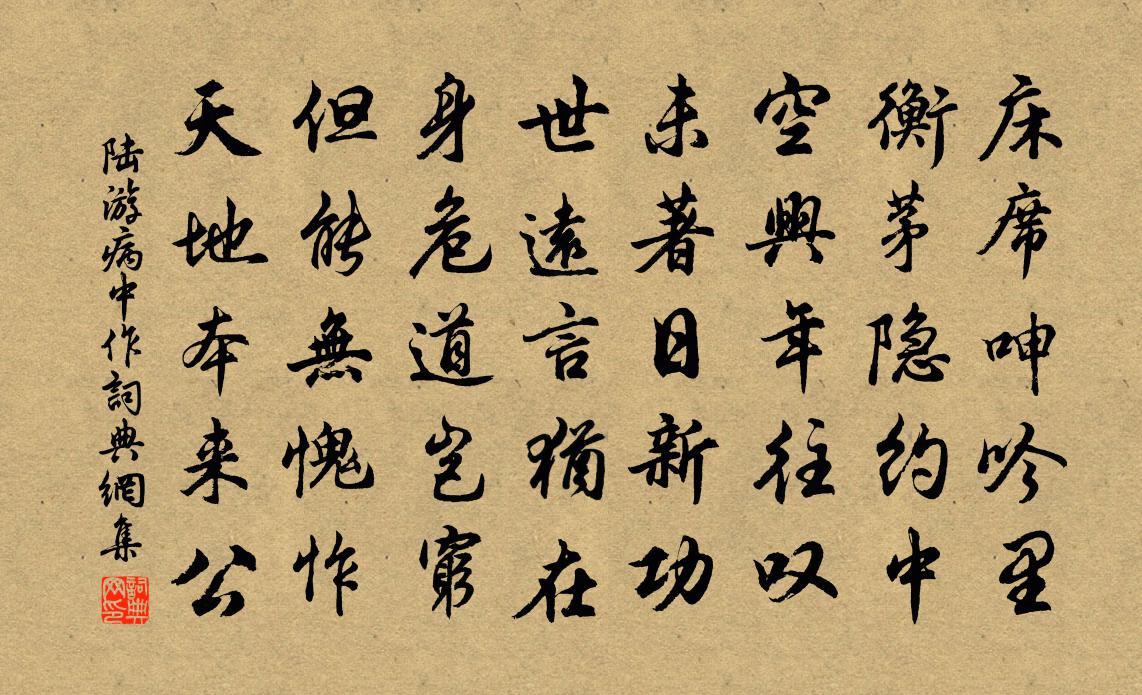 床席呻吟里
衡茅隐約中
空興年往叹
未著日新功
世遠言猶在
身危道豈窮
但能無愧怍
天地本来公
陆游病中作詞典網集
詞典網印